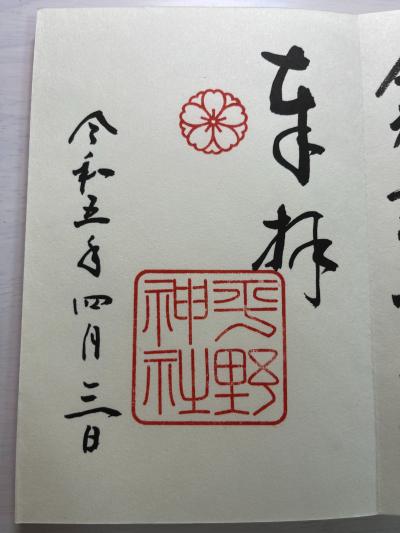 奉拝
平野
神社
令和五年四月三日